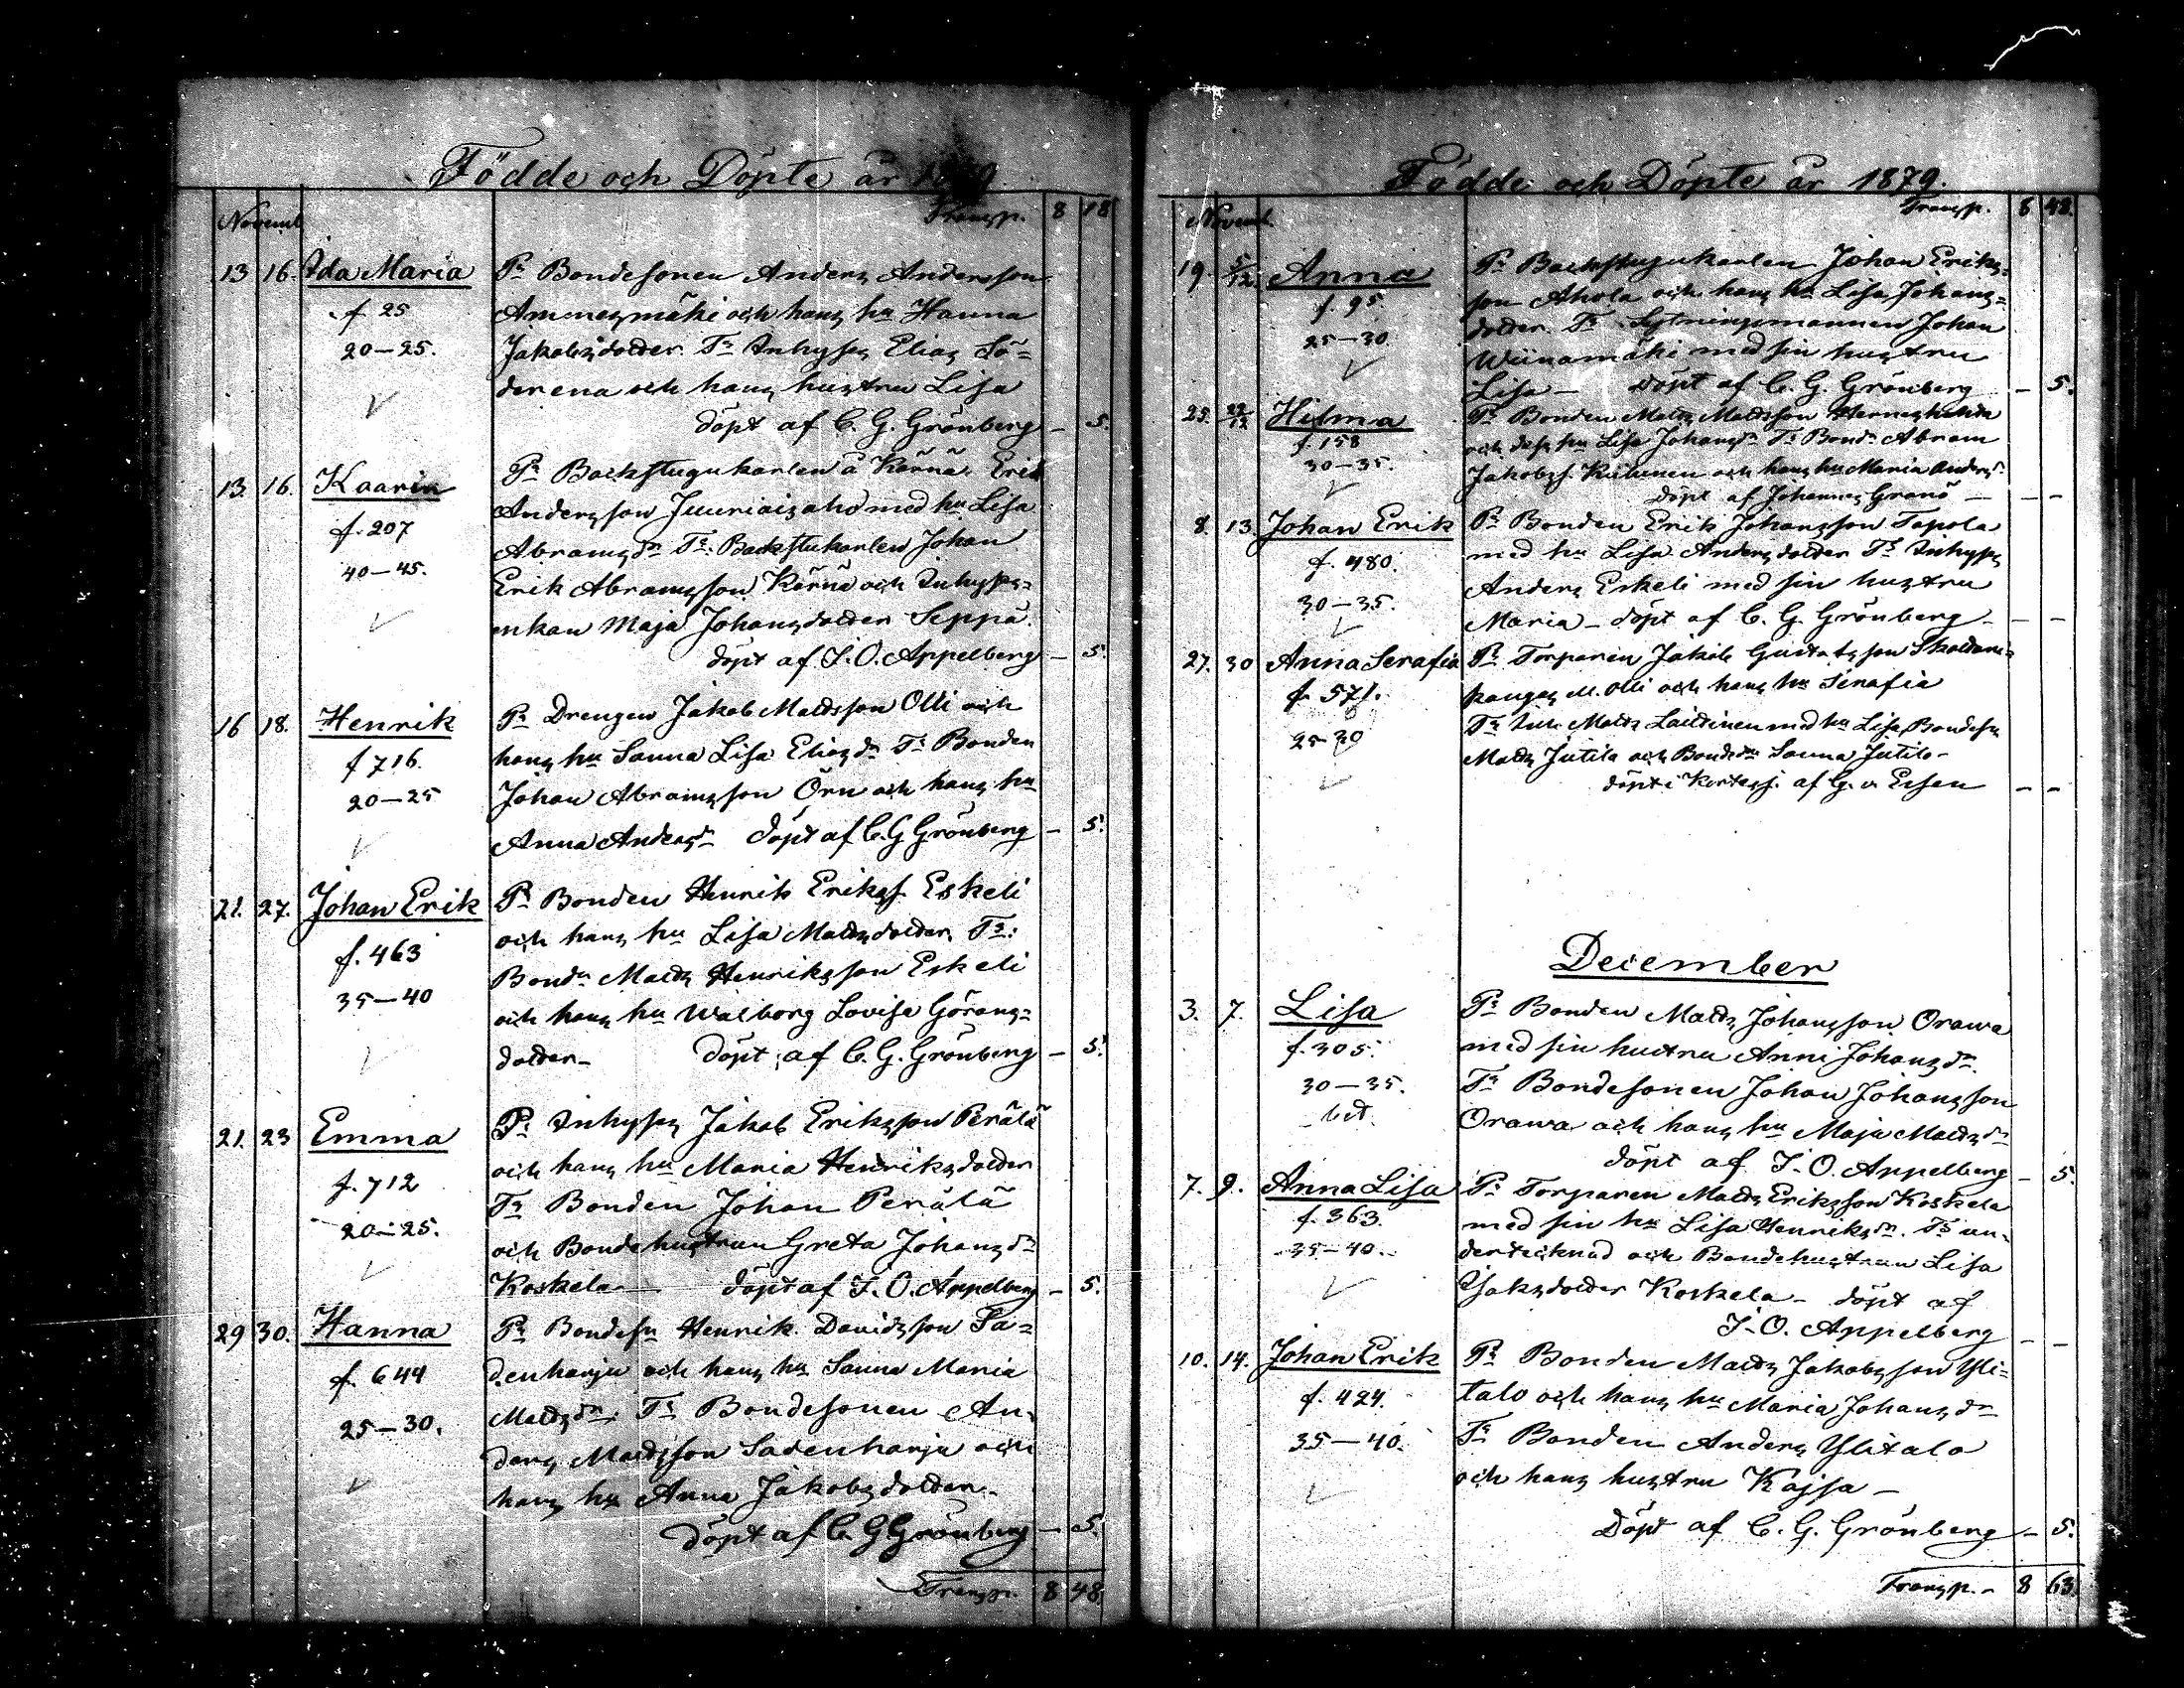 Födde och Döpte år 1879
Novemb. Transp. 8 18
13 16. Ida Maria Pr Bondesonen Anders Andersson
f 25 Ammesmäki och hans hu Hanna
20-25. Jakobsdotter. Tr Inhyses Elias Sö=
derena och hans hustru Lisa
döpt af C. G. Grönberg – 5.
13. 16. Kaarin Pr Backstugukarlen å Kärnä Erik
f. 207 Andersson Juuriaisaho med hu Lisa
40-45. Abramsdr Tr. Backstukarlen Johan
Erik Abramsson Kärnä och Inhyses=
enkan Maja Johansdotter Seppä.
döpt af J. O. Appelberg – 5.
16 18. Henrik Pr Drengen Jakob Matsson Olli och
f 716. hans hu Sanna Lisa Eliasdr Tr Bonden
20-25 Johan Abramsson Örn och hans hu
Anna Andersdr döpt af C. G Grönberg – 5.
21. 27. Johan Erik Pr Bonden Henrik Erikss. Eskeli
f. 463 och hans hu Lisa Mattsdotter. Tr:
35-40 Bondn Matts Henriksson Eskeli
och hans hu Walborg Lovisa Görans=
dotter– döpt af C. G. Grönberg – 5.
21. 23 Emma Pr Inhyses Jakob Eriksson Perälä
f. 712 och hans hu Maria Henriksdotter
20-25. Tr Bonden Johan Perälä
och Bondehustrun Greta Johansdr
Koskela – döpt af J. O. Appelberg – 5.
29 30. Hanna Pr Bondesn Henrik Davidsson Sa=
f. 644 denharju och hans hu Sanna Maria
25-30. Mattsdr. Tr Bondesonen An=
ders Mattsson Sadenharju och
hans hu Anna Jakobsdotter.
döpt af C. G Grönberg – 5.
Transp. 8 48
Födde och Döpte år 1879.
Novemb. Transp. 8 48.
19. 5/12. Anna Pr Backstugukarlen Johan Eriks=
f. 95. son Ahola och hans hu Lisa Johans=
25-30 dotter. Tr Sytningsmannen Johan
Wiinamäki med sin hustru
Lisa – döpt af C. G. Grönberg – 5.
25. Hilma Pr Bonden Matts Mattsson
f. 158 och dess hu Lisa Johansdr Tr Bondn Abram
30-35. Jakobss. och hans hu Maria Andersdr
döpt af Johannes Granö – – –
8. 13. Johan Erik Pr Bonden Erik Johansson Tapola
f. 480. med hu Lisa Andersdotter Tr Inhyses
30-35. Anders Eskeli med sin hustru
Maria – döpt af C. G. Grönberg – – –
27. 30 Anna Serafia Pr Torparen Jakob Gustafsson
f. 571. kangas M. Olli och hans hu Serafia
25-30 Tr Inh. Matts Laitinen med hu Lisa, Bondesn
Matts Jutila och Bondedn Sanna Jutila –
döpt i Kortesj. af G. v. Essen – –
December
3. 7. Lisa Pr Bonden Matts Johansson Orawa
f. 305. med sin hustru Anni Johansdr.
30-35. Tr Bondesonen Johan Johansson
bet. Orawa och hans hu Maja Mattsdr
döpt af J. O. Appelberg – 5.
7. 9. Anna Lisa Pr Torparen Matts Eriksson Koskela
f. 363. med sin hu Lisa Henriksdr. Tr un=
35-40. dertecknad och Bondehustrun Lisa
Isaksdotter Koskela – döpt af
J. O. Appelberg – –
10. 14. Johan Erik Pr Bonden Matts Jakobsson Yli=
f. 424. talo och hans hu Maria Johansdr
35-40. Tr Bonden Anders Ylitalo
och hans hustru Kajsa –
Döpt af C. G. Grönberg – 5.
Transp. – 8 63.